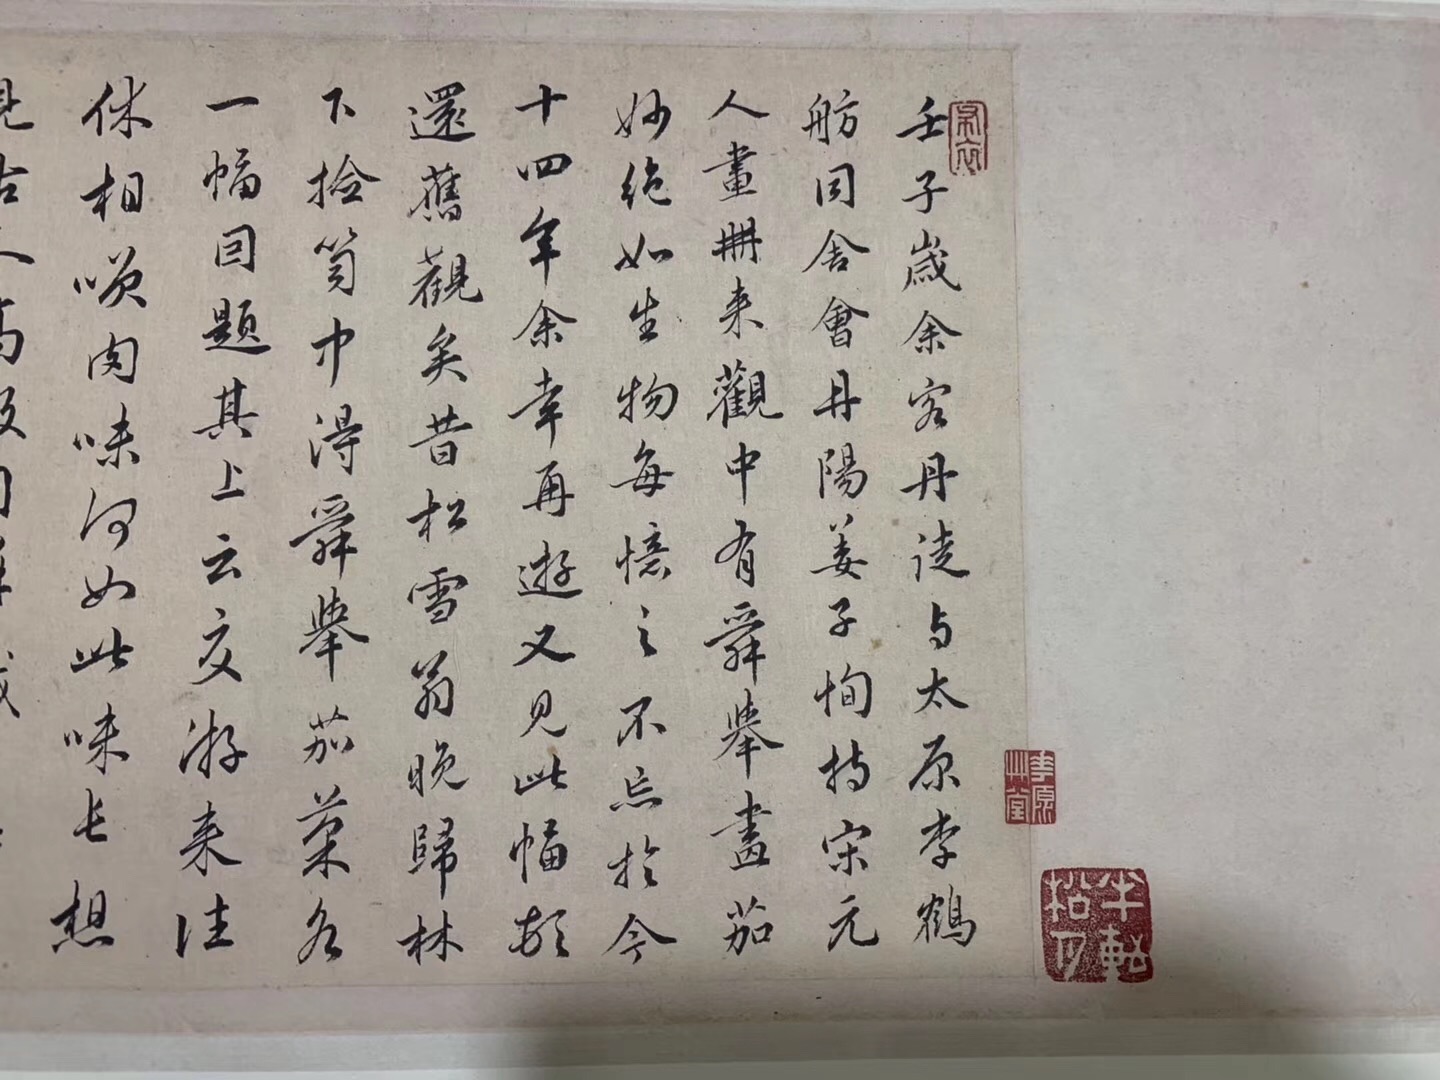 壬子歲余客丹徒与太原李鶴
舫同舍會丹陽姜子恂持宋元
人畫冊来觀中有舜舉畫茄
妙絶如生物每憶之不忘於今
十四年余幸再遊又見此幅頓
還舊觀矣昔松雪翁晩歸林
下捡笥中得舜舉茄菜各
一幅因題其上云交游来往
休相唤肉味何如此味長想
見古人高
季原
草堂
半軒
松月